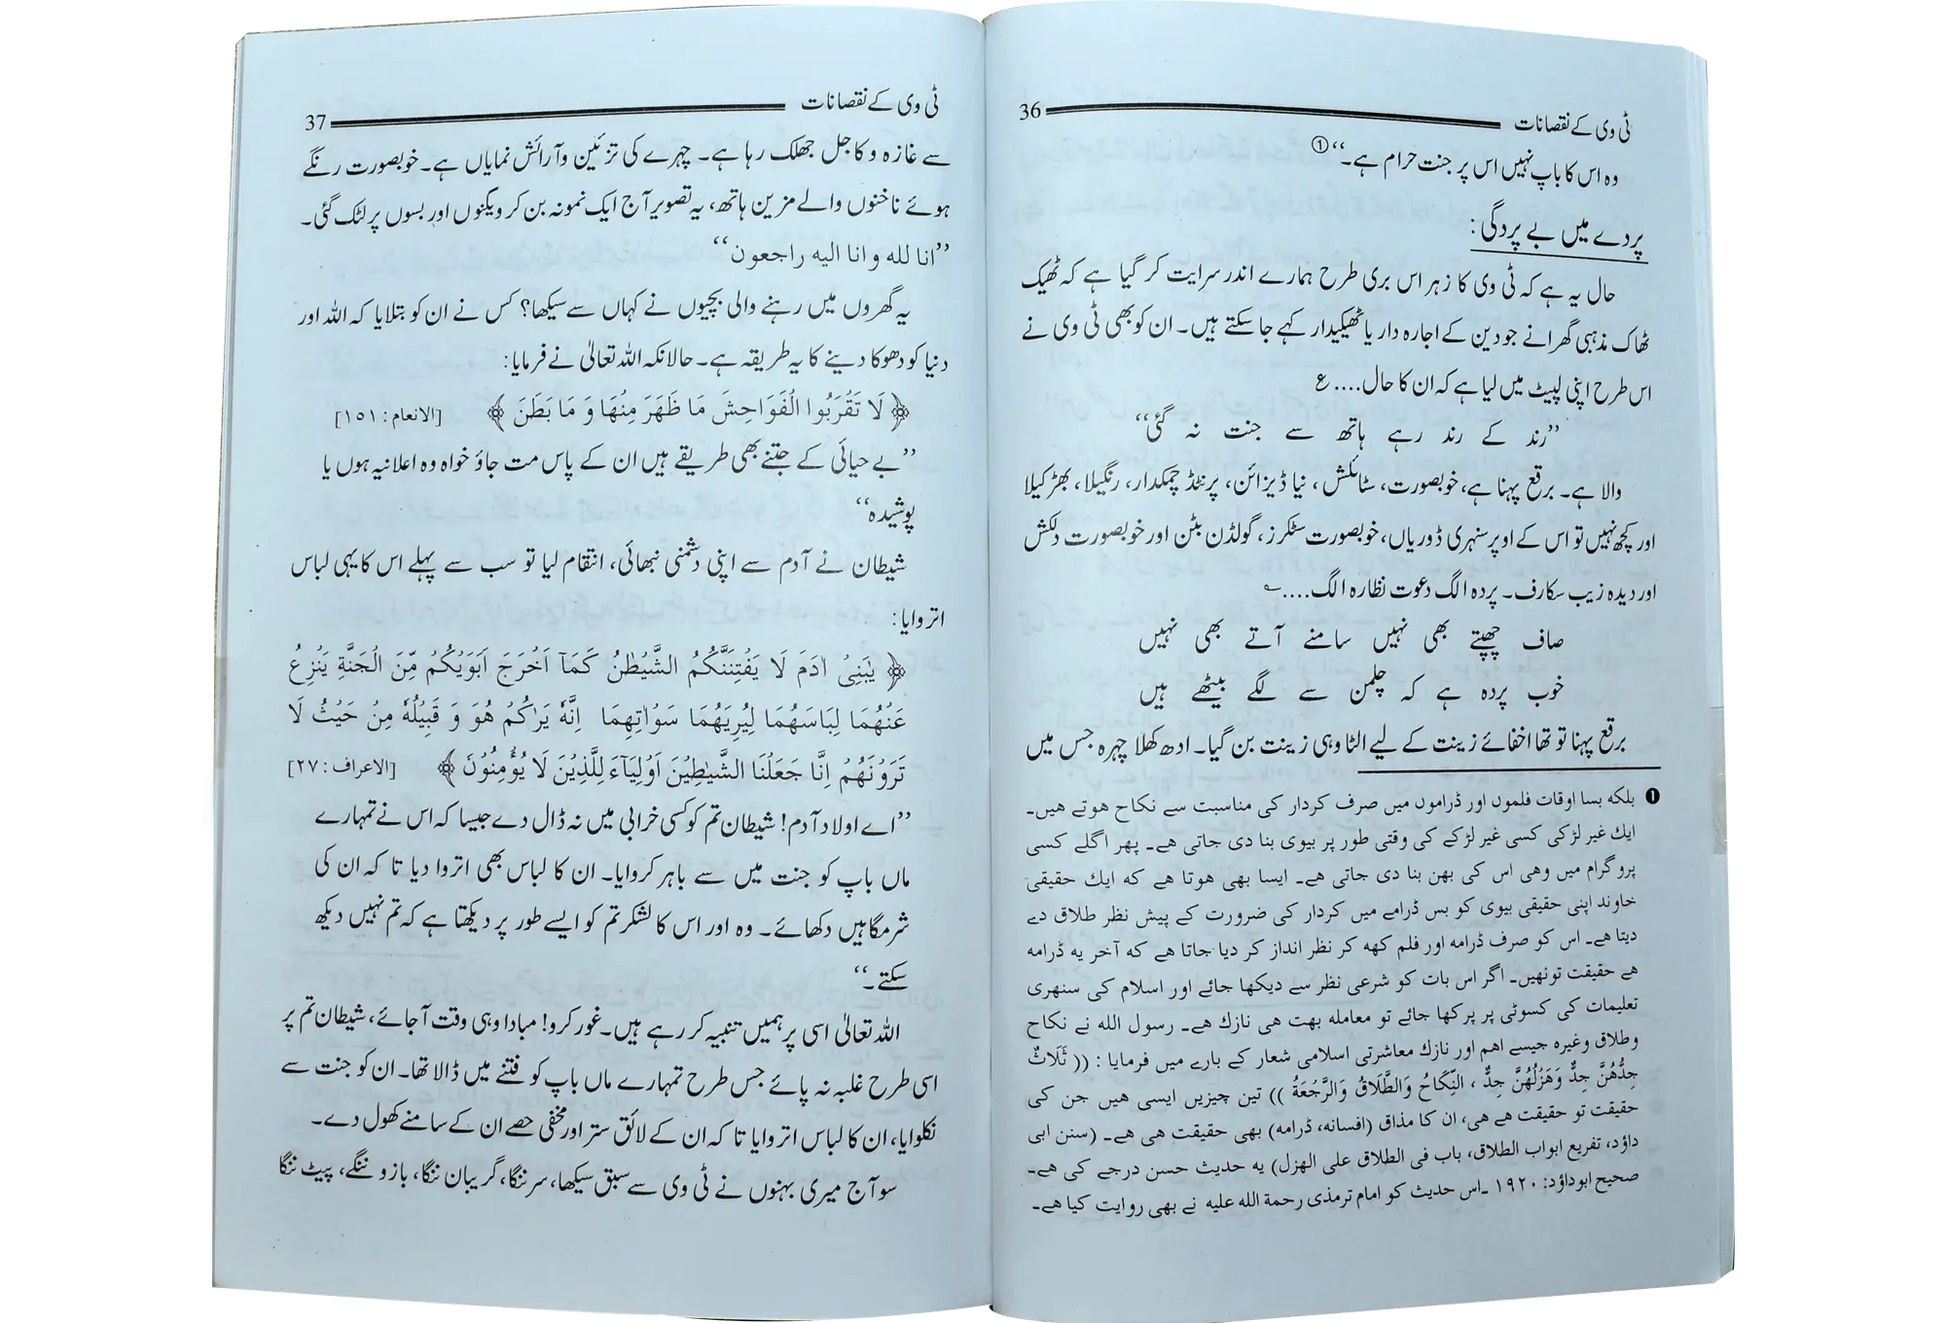 ٹی وی کے نقصانات 36
وہ اس کا باپ نہیں اس پر جنت حرام ہے۔‘‘①
پردے میں بے پردگی:
حال یہ ہے کہ ٹی وی کا زہر اس بری طرح ہمارے اندر سرایت کر گیا ہے کہ ٹھیک
ٹھاک مذہبی گھرانے جو دین کے اجارہ دار یا ٹھیکیدار کہے جا سکتے ہیں۔ ان کو بھی ٹی وی نے
اس طرح اپنی لپیٹ میں لیا ہے کہ ان کا حال.... ع
’’رند کے رند رہے ہاتھ سے جنت نہ گئی‘‘
والا ہے۔ برقع پہنا ہے، خوبصورت، سٹائلش، نیا ڈیزائن، پرنٹڈ چمکدار، رنگیلا، بھڑکیلا
اور کچھ نہیں تو اس کے اوپر سنہری ڈوریاں، خوبصورت سٹکرز، گولڈن بٹن اور خوبصورت دلکش
اور دیدہ زیب سکارف۔ پردہ الگ دعوت نظارہ الگ....؎
صاف چھپتے بھی نہیں سامنے آتے بھی نہیں
خوب پردہ ہے کہ چلمن سے لگے بیٹھے ہیں
برقع پہنا تو تھا اخفائے زینت کے لیے الٹا وہی زینت بن گیا۔ ادھ کھلا چہرہ جس میں
❶ بلکہ بسا اوقات فلموں اور ڈراموں میں صرف کردار کی مناسبت سے نکاح ہوتے ہیں۔
ایک غیر لڑکی کسی غیر لڑکے کی وقتی طور پر بیوی بنا دی جاتی ہے۔ پھر اگلے کسی
پروگرام میں وہی اس کی بھن بنا دی جاتی ہے۔ ایسا بھی ہوتا ہے کہ ایک حقیقی
خاوند اپنی حقیقی بیوی کو بس ڈرامے میں کردار کی ضرورت کے پیش نظر طلاق دے
دیتا ہے۔ اس کو صرف ڈرامہ اور فلم کہہ کر نظر انداز کر دیا جاتا ہے کہ آخر یہ ڈرامہ
ہے حقیقت تو نہیں۔ اگر اس بات کو شرعی نظر سے دیکھا جائے اور اسلام کی سنہری
تعلیمات کی کسوٹی پر پرکھا جائے تو معاملہ بہت ہی نازک ہے۔ رسول اللہ نے نکاح
وطلاق وغیرہ جیسے اہم اور نازک معاشرتی اسلامی شعار کے بارے میں فرمایا : (( ثَلَاثٌ
جِدُّهُنَّ جِدٌّ وَهَزْلُهُنَّ جِدٌّ ، النِّكَاحُ وَالطَّلَاقُ وَالرَّجْعَةُ )) تین چیزیں ایسی ہیں جن کی
حقیقت تو حقیقت ہے ہی، ان کا مذاق (افسانہ، ڈرامہ) بھی حقیقت ہی ہے۔ (سنن ابی
داؤد، تفریع ابواب الطلاق، باب فی الطلاق علی الھزل) یہ حدیث حسن درجے کی ہے۔
صحیح ابوداؤد: ۱۹۲۰ ۔اس حدیث کو امام ترمذی رحمة الله عليه نے بھی روایت کیا ہے۔
ٹی وی کے نقصانات 37
سے غازہ و کاجل جھلک رہا ہے۔ چہرے کی تزئین وآرائش نمایاں ہے۔ خوبصورت رنگے
ہوئے ناخنوں والے مزین ہاتھ، یہ تصویر آج ایک نمونہ بن کر ویگنوں اور بسوں پر لٹک گئی۔
’’انا لله و انا اليه راجعون‘‘
یہ گھروں میں رہنے والی بچیوں نے کہاں سے سیکھا؟ کس نے ان کو بتلایا کہ اللہ اور
دنیا کو دھوکا دینے کا یہ طریقہ ہے۔ حالانکہ اللہ تعالیٰ نے فرمایا:
﴿ لَا تَقْرَبُوا الْفَوَاحِشَ مَا ظَهَرَ مِنْهَا وَ مَا بَطَنَ ﴾ [الانعام : ١٥١]
’’بے حیائی کے جتنے بھی طریقے ہیں ان کے پاس مت جاؤ خواہ وہ اعلانیہ ہوں یا
پوشیدہ‘‘
شیطان نے آدم سے اپنی دشمنی نبھائی، انتقام لیا تو سب سے پہلے اس کا یہی لباس
اتروایا:
﴿ يٰبَنِىْ اٰدَمَ لَا يَفْتِنَنَّكُمُ الشَّيْطٰنُ كَمَآ اَخْرَجَ اَبَوَيْكُمْ مِّنَ الْجَنَّةِ يَنْزِعُ
عَنْهُمَا لِبَاسَهُمَا لِيُرِيَهُمَا سَوْاٰتِهِمَا اِنَّهٗ يَرٰىكُمْ هُوَ وَ قَبِيْلُهٗ مِنْ حَيْثُ لَا
تَرَوْنَهُمْ اِنَّا جَعَلْنَا الشَّيٰطِيْنَ اَوْلِيَآءَ لِلَّذِيْنَ لَا يُؤْمِنُوْنَ ﴾ [الاعراف : ٢٧]
’’اے اولاد آدم! شیطان تم کو کسی خرابی میں نہ ڈال دے جیسا کہ اس نے تمہارے
ماں باپ کو جنت میں سے باہر کروایا۔ ان کا لباس بھی اتروا دیا تا کہ ان کی
شرمگاہیں دکھائے۔ وہ اور اس کا لشکر تم کو ایسے طور پر دیکھتا ہے کہ تم نہیں دیکھ
سکتے۔‘‘
اللہ تعالیٰ اسی پر ہمیں تنبیہ کر رہے ہیں۔ غور کرو! مبادا وہی وقت آ جائے، شیطان تم پر
اسی طرح غلبہ نہ پائے جس طرح تمہارے ماں باپ کو فتنے میں ڈالا تھا۔ ان کو جنت سے
نکلوایا، ان کا لباس اتروایا تا کہ ان کے لائق ستر اور مخفی حصے ان کے سامنے کھول دے۔
سو آج میری بہنوں نے ٹی وی سے سبق سیکھا، سر ننگا، گریبان ننگا، بازو ننگے، پیٹ ننگا